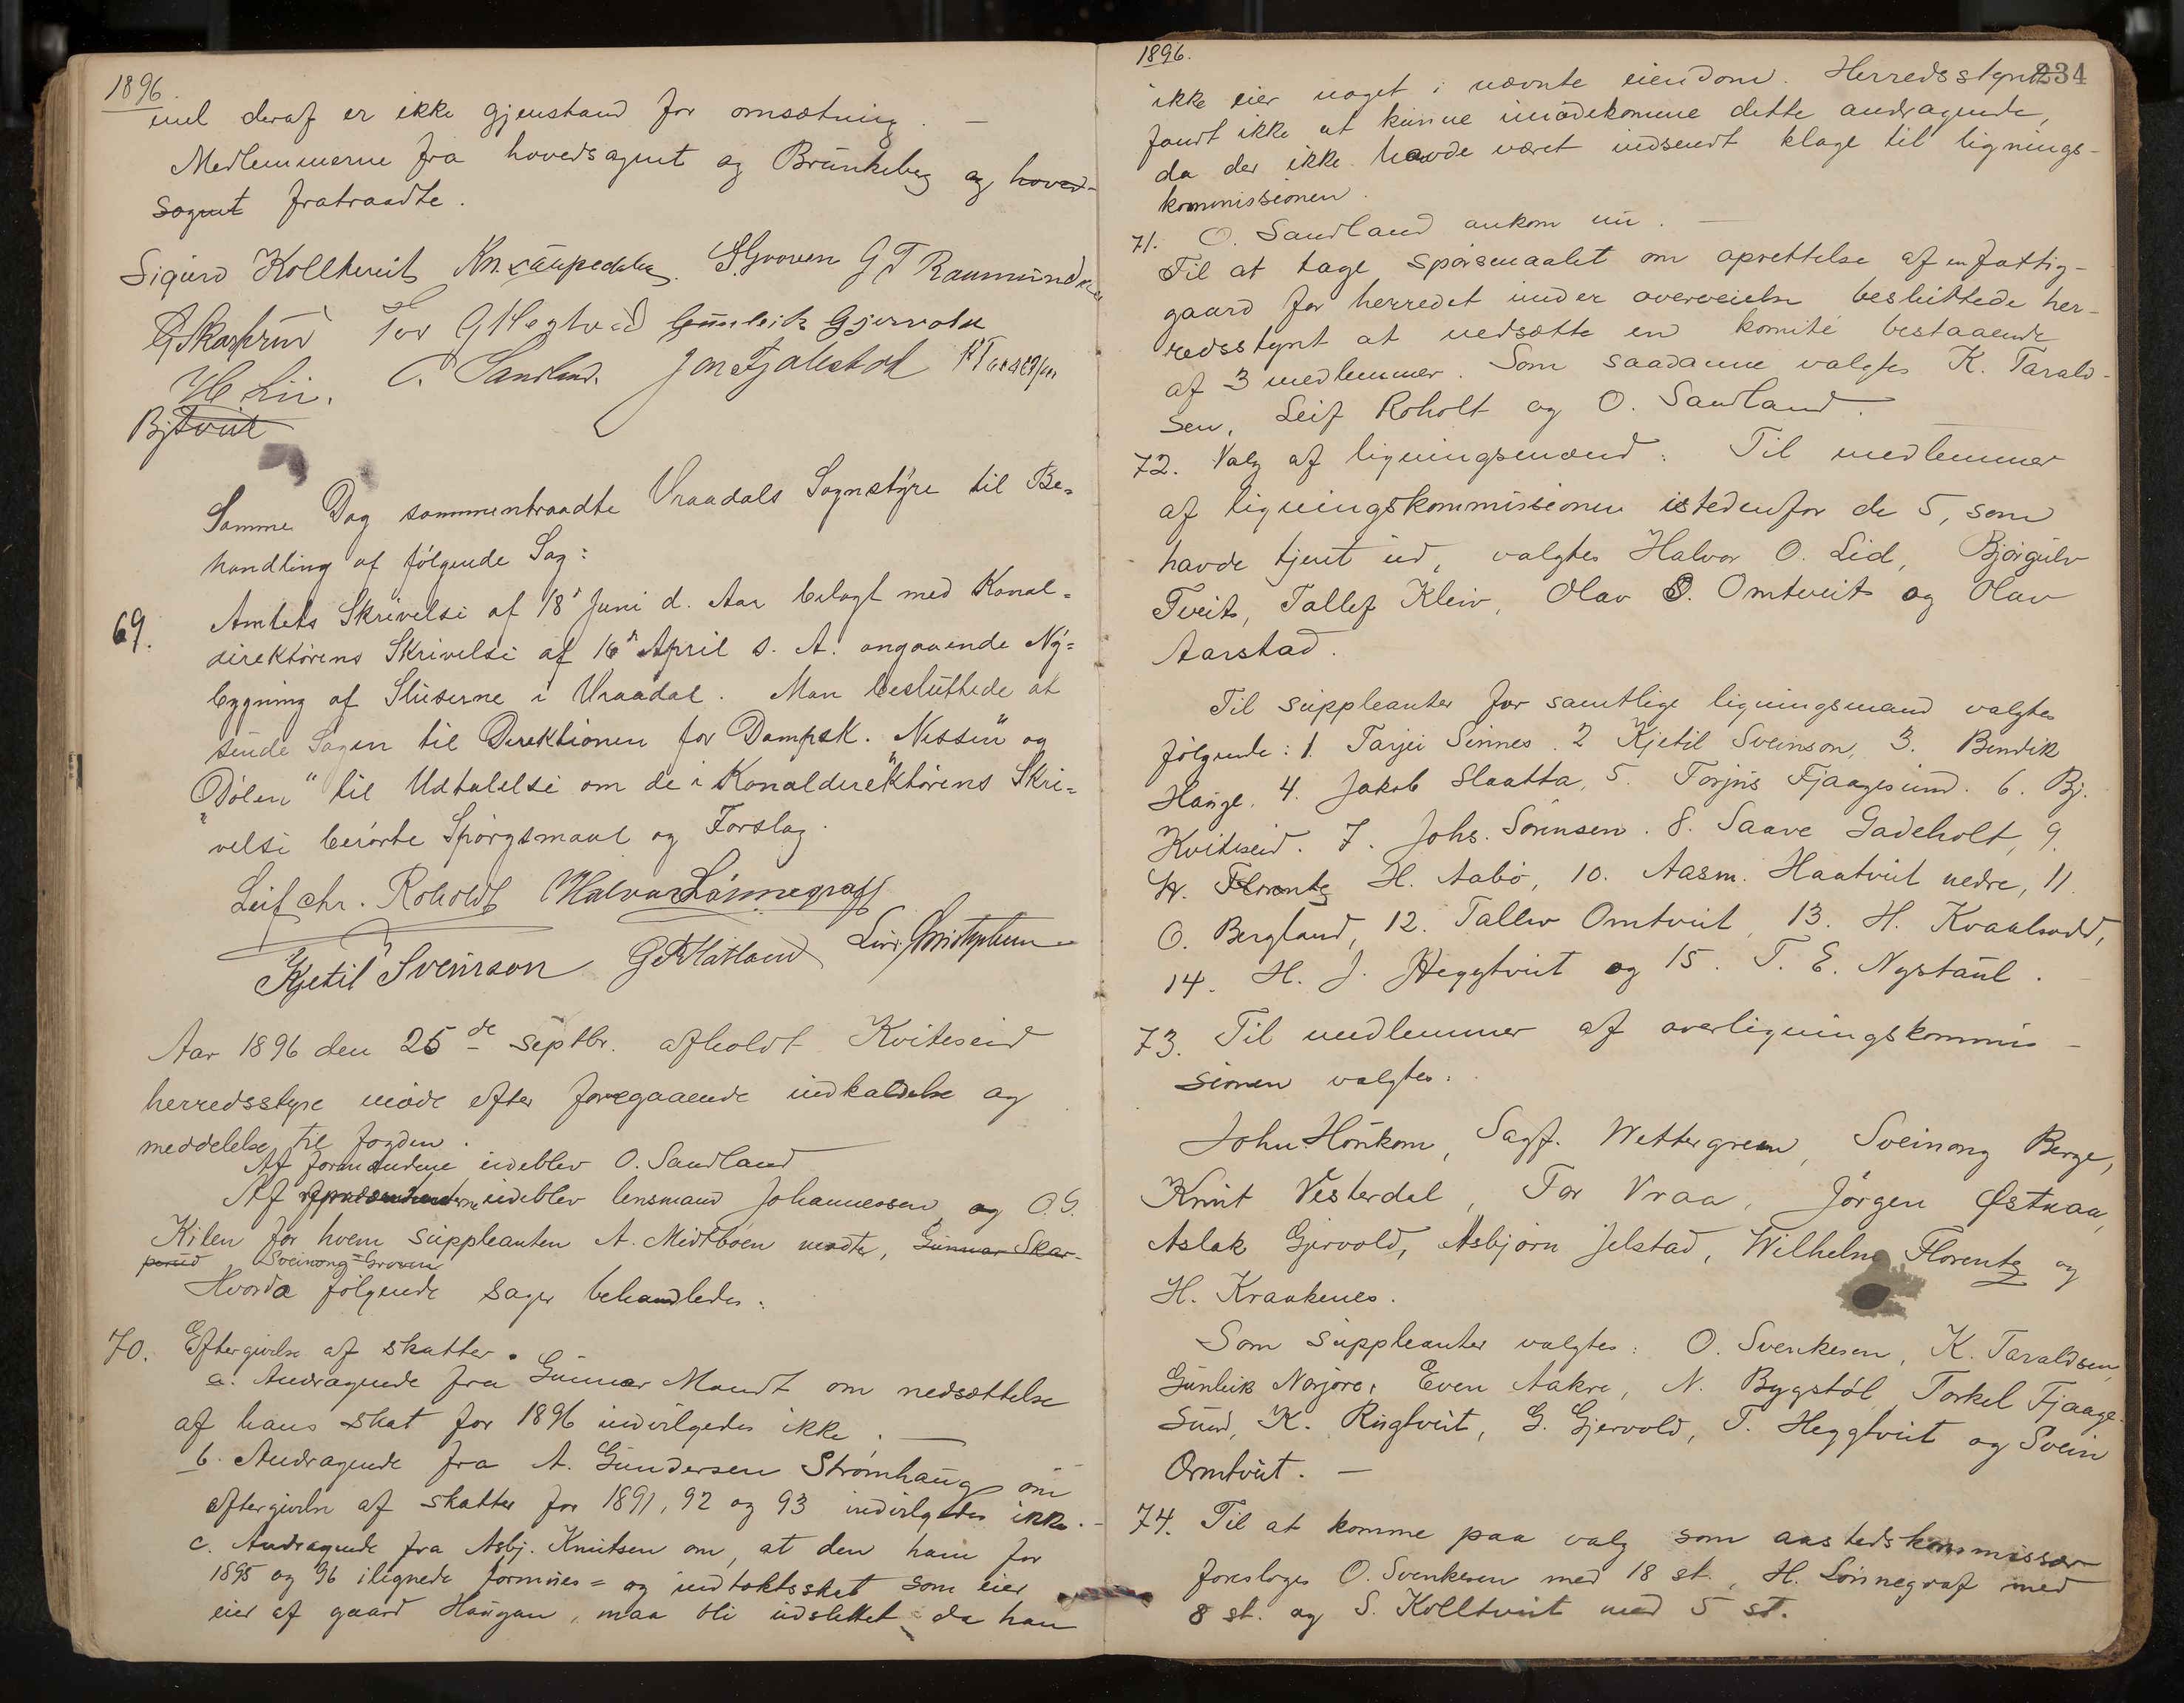 1896
deraf er ikke gjenstand for omsætning. —
Medlemmerne fra hovedsognet og Brunkeberg og hoved-
sognet fratraadte.
Sigurd Kolltveit S. Grovum G T Raamunddal
G Skarprud Tor G Hegtveit Gunleik Gjervold
H Lii. O. Sandland. Jon Fjalestad K Taraldsen
Bj Tveit
Samme Dag sammentraadte Vraadals Sognestyre til Be=
handling af følgende Sag:
69. Amtets Skrivelse af 18de Juni d. Aar belagt med Kanal=
direktørens Skrivelse af 16de April s. A. angaaende Ny=
bygning af Sluserne i Vraadal. Man besluttede at
sende Sagen til Direktionen for Dampsk. "Nissen" og
"Dølen" til Udtalelse om de i Kanaldirektørens Skri=
velse berørte Spørgsmaal og Forslag.
Leif Chr. Roholdt Halvor Lønnegraff
Kjetil Sveinson G K Hatland
Aar 1896 den 25de septbr. afholdt Kviteseid
herredsstyre møde efter foregaaende indkaldelse og
meddelelse til fogden.
Af formændene udeblev O. Sandland
Af repræsentanterne udeblev lensmand Johannessen og O. G.
Kilen for hvem suppleanten A. Midtbøen mødte, Gunnar Skar-
perud Sveinong Groven
Hvorda følgende sager behandledes:
70. Eftergivelse af skatter.
a. Andragende fra Gunnar Mandt om nedsættelse
af hans skat for 1896 indvilgedes ikke. —
b. Andragende fra A. Gundersen Strømhaug om
eftergivelse af skatter for 1891, 92 og 93 indvilgedes ikke. -
c. Andragende fra Asbj. Knutsen om, at den ham for
1895 og 96 ilignede formues= og indtektsskat som eier
eier af gaard Haugan, maa bli udslettet da han
1896. 234
ikke eier noget i nævnte eiendom. Herredsstyret
fandt ikke at kunne imødekomme dette andragende,
da der ikke havde været indsendt klage til lignings-
kommissionen.
71. O. Sandland ankom nu. —
Til at tage spørsmaalet om oprettelse af en fattig-
gaard for herredet under overveielse besluttede her-
redsstyret at nedsætte en komité bestaaende
af 3 medlemmer. Som saadanne valgtes K. Tarald-
sen, Leif Roholt og O. Sandland.
72. Valg af ligningsmænd: Til medlemmer
af ligningskommissionen istedenfor de 5, som
havde tjent ud, valgtes Halvor O. Lid, Bjørgulv
Tveit, Tallef Kleiv, Olav S. Omtveit og Olav
Aarstad.
Til suppleanter for samtlige ligningsmænd valgtes
følgende: 1. Tarjei Sinnes. 2 Kjetil Sveinson, 3. Bendik
Hauge, 4. Jakob Slaatta, 5. Torjus Fjaagesund. 6. Bj.
Kviteseid. 7. Johs. Sørensen. 8. Saave Gadeholt, 9.
W. Florentz H. Aabø, 10. Aasm. Haatveit nedre, 11.
O. Bergland, 12. Tallev Omtveit, 13. H. Kvaalsodd,
14. H. J. Heggtveit og 15. T. E. Nystaul. -
73. Til medlemmer af overligningskommis-
sionen valgtes:
John Hønkom, Sagf. Wettergreen, Sveinong Berge,
Knut Vesterdal, Tor Vraa, Jørgen Østnaa,
Aslak Gjervold, Asbjørn Jelstad, Wilhelm Florentz og
H. Kraakenes.
Som suppleanter valgtes: O. Svenkesen, K. Taraldsen,
Gunleik Norjore, Even Aakre, N. Bygstøl, Torkel Fjaage-
sund, K. Rugtveit, G. Gjervold, T. Heggtveit og Svein
Omtveit. —
74. Til at komme paa valg som aastedskommissær
foresloges O. Svenkesen med 18 st., H. Lønnegraf med
8 st. og S. Kolltveit med 5 st.